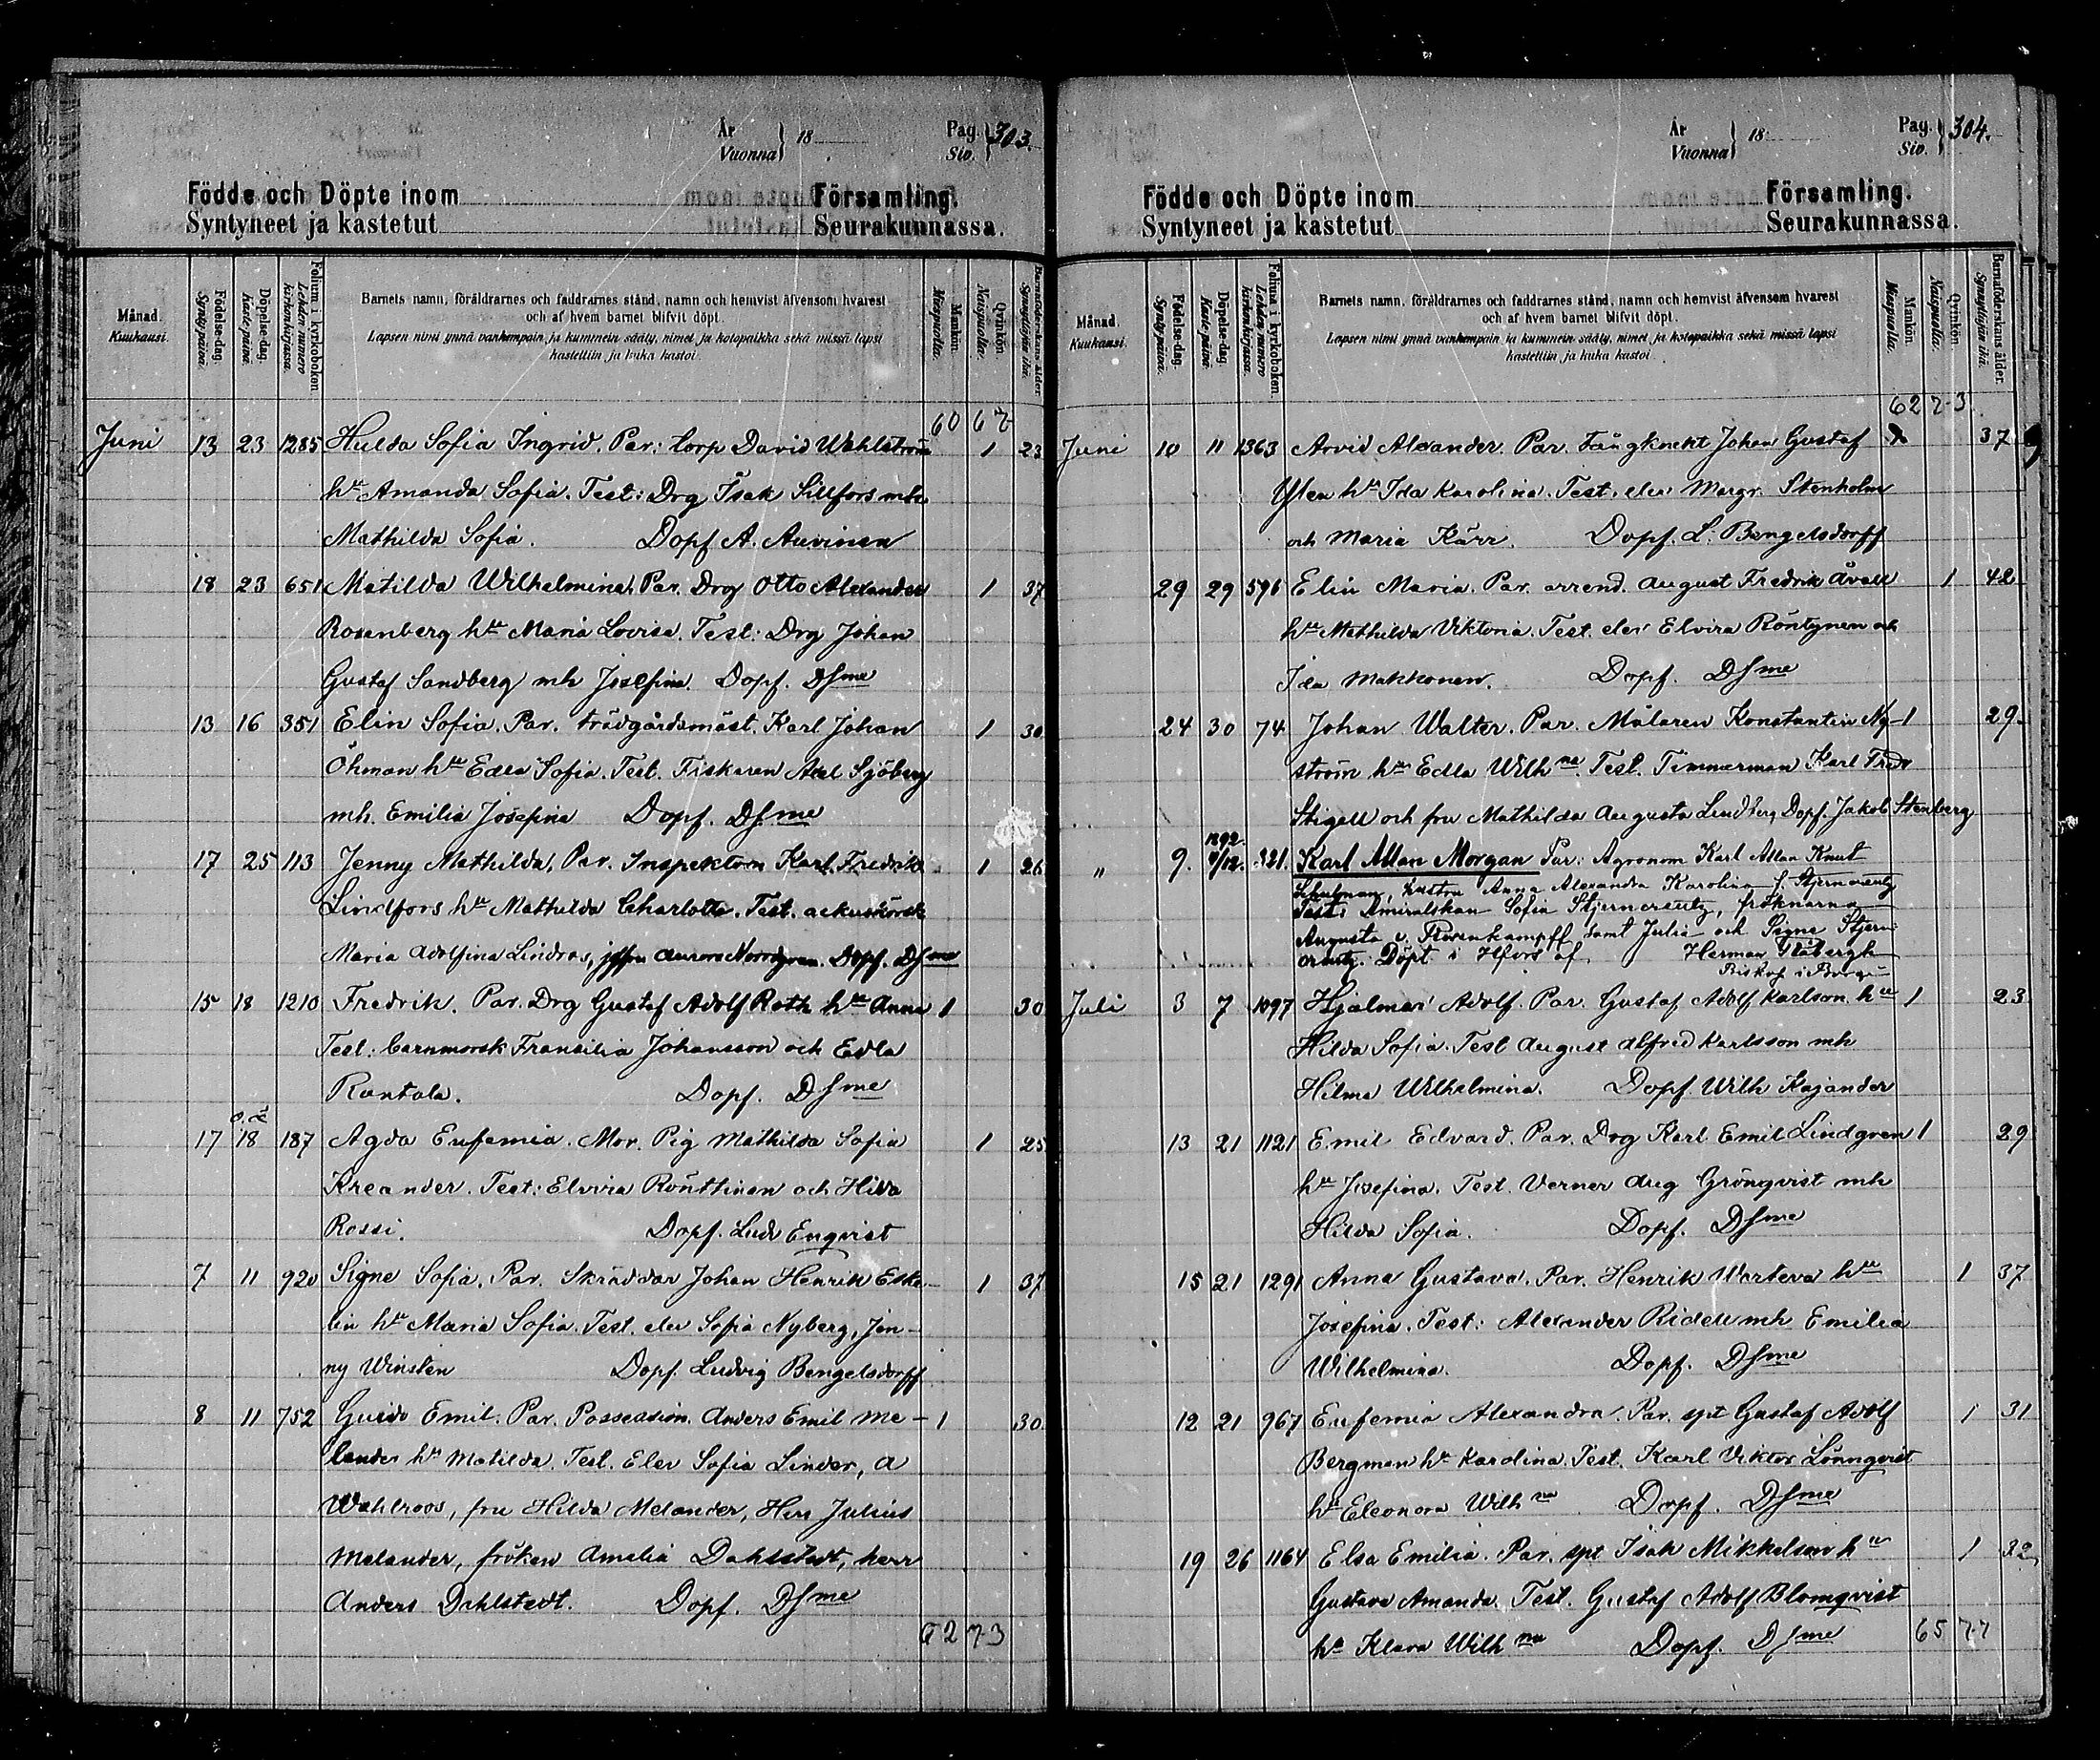 År
Vuonna } 18
Pag.
Siv. } 303.
Födde och Döpte inom Församling.
Syntyneet ja kastetut Seurakunnassa.
Månad.
Kuukausi.
Födelse-dag.
Syntypäivä.
Döpelse-dag.
Kaste-päivä.
Folium i kyrkoboken.
Lehden numero kirkonkirjassa.
Barnets namn, föräldrarnes och faddrarnes stånd, namn och hemvist äfvensom hvarest
och af hvem barnet blifvit döpt.
Lapsen nimi ynnä vanhempain ja kummein sääty, nimet ja kotopaikka sekä missä lapsi
kastettiin ja kuka kastoi.
Mankön.
Miespuolia.
Qvinkön.
Naispuolia.
Barnaföderskans ålder.
Synnyttäjän ikä.
60 67
Juni 13 23 1285 Hulda Sofia Ingrid. Par: torp David Wahlström 1 23
hu Amanda Sofia. Test: Drg Isak Sillfors mh
Mathilda Sofia. Dopf A. Auvinen
18 23 651 Matilda Wilhelmina, Par. Drg Otto Alexander 1 37
Rosenberg hu Maria Lovisa. Test: Drg Johan
Gustaf Sandberg mh Josefina. Dopf. Dsme
13 16 351 Elin Sofia. Par. trädgårdsmäst. Karl Johan 1 30
Öhman hu Edla Sofia. Test. Fiskaren Axel Sjöberg
mh. Emilia Josefina Dopf. Dsme
17 25 113 Jenny Mathilda, Par. Inspektorn Karl Fredrik 1 26
Lindfors hu Mathilda Charlotta. Test. ackuskörsk
Maria Adolfina Lindros, jgfru Aurora Nordgren. Dopf. Dsme
15 18 1210 Fredrik. Par. Drg Gustaf Adolf Roth hu Anna 1 30
Test: barnmorsk Fransilia Johansson och Edla
Rantala. Dopf. Dsme
o.ä.
17 18 187 Agda Eufemia. Mor. Pig Mathilda Sofia 1 25
Kreander. Test: Elvira Rönttinen och Hilda
Rossi. Dopf. Ludv Enqvist
7 11 920 Signe Sofia. Par. Skräddar Johan Henrik Eke- 1 37
lin hu Maria Sofia. Test. elev Sofia Nyberg, Jen-
ny Winsten Dopf. Ludvig Bengelsdorff
8 11 752 Guido Emil. Par. Possession. Anders Emil Me- 1 30.
lander hu Matilda. Test. Elev Sofia Linder, A
Wahlroos, fru Hilda Melander, Herr Julius
Melander, fröken Amalia Dahlstedt, herr
Anders Dahlstedt. Dopf. Dsme
62 73
År
Vuonna } 18
Pag.
Siv. } 304.
Födde och Döpte inom Församling.
Syntyneet ja kastetut Seurakunnassa.
Månad.
Kuukausi.
Födelse-dag.
Syntypäivä.
Döpelse-dag.
Kaste-päivä.
Folium i kyrkoboken.
Lehden numero kirkonkirjassa.
Barnets namn, föräldrarnes och faddrarnes stånd, namn och hemvist äfvensom hvarest
och af hvem barnet blifvit döpt.
Lapsen nimi ynnä vanhempain ja kummein sääty, nimet ja kotopaikka sekä missä lapsi
kastettiin ja kuka kastoi.
Mankön.
Miespuolia.
Qvinkön.
Naispuolia.
Barnaföderskans ålder.
Synnyttäjän ikä.
62 73
Juni 10 11 1363 Arvid Alexander. Par. Fångknekt Johan Gustaf 37
Ylen hu Ida Karolina. Test. elev Margr. Stenholm
och Maria Kärr. Dopf. L. Bengelsdorff
29 29 596 Elin Maria. Par. arrend. August Fredrik Åvall 1 42
hu Mathilda Viktoria. Test. elev Elvira Röntynen och
Ida Makkonen. Dopf. Dsme
24 30 74 Johan Walter. Par. Målaren Konstantin Ny- 1 29
ström hu Edla Wilhna. Test. Timmerman Karl Fredr
Stigell och fru Mathilda Augusta Lindberg Dopf. Jakob Stenberg
1892
" 9. 4/12. 321. Karl Allan Morgan Par: Agronom Karl Allan Knut
Schulman, hustru Anna Alexandra Karolina f. Stjerncreutz
Test: Amiralskan Sofia Stjerncreutz, fröknarna
Augusta v. Rosenkampff samt Julia och Signe Stjern-
creutz. Döpt i Hfors af Herman Råbergh
Biskop i Borgå
Juli 3 7 1097 Hjalmar Adolf. Par. Gustaf Adolf Karlson hu 1 23
Hilda Sofia. Test August Alfred Karlsson mh
Hilma Wilhelmina. Dopf. Wilh Kajander
13 21 1121 Emil Edvard. Par. Drg Karl Emil Lindgren 1 29
hu Josefina. Test. Verner Aug Grönqvist mh
Hilda Sofia. Dopf. Dsme
15 21 1291 Anna Gustava. Par. Henrik Warteva hu 1 37
Josefina. Test: Alexander Ridell mh Emilia
Wilhelmina. Dopf. Dsme
12 21 967 Eufemia Alexandra. Par. spt Gustaf Adolf 1 31
Bergman hu Karolina. Test. Karl Viktor Lönnqvist
hu Eleonora Wilhna Dopf. Dsme
19 26 1164 Elsa Emilia. Par. spt Isak Mikkelson hu 1 32
Gustava Amanda. Test. Gustaf Adolf Blomqvist
hu Klara Wilhna Dopf. Dsme
65 77